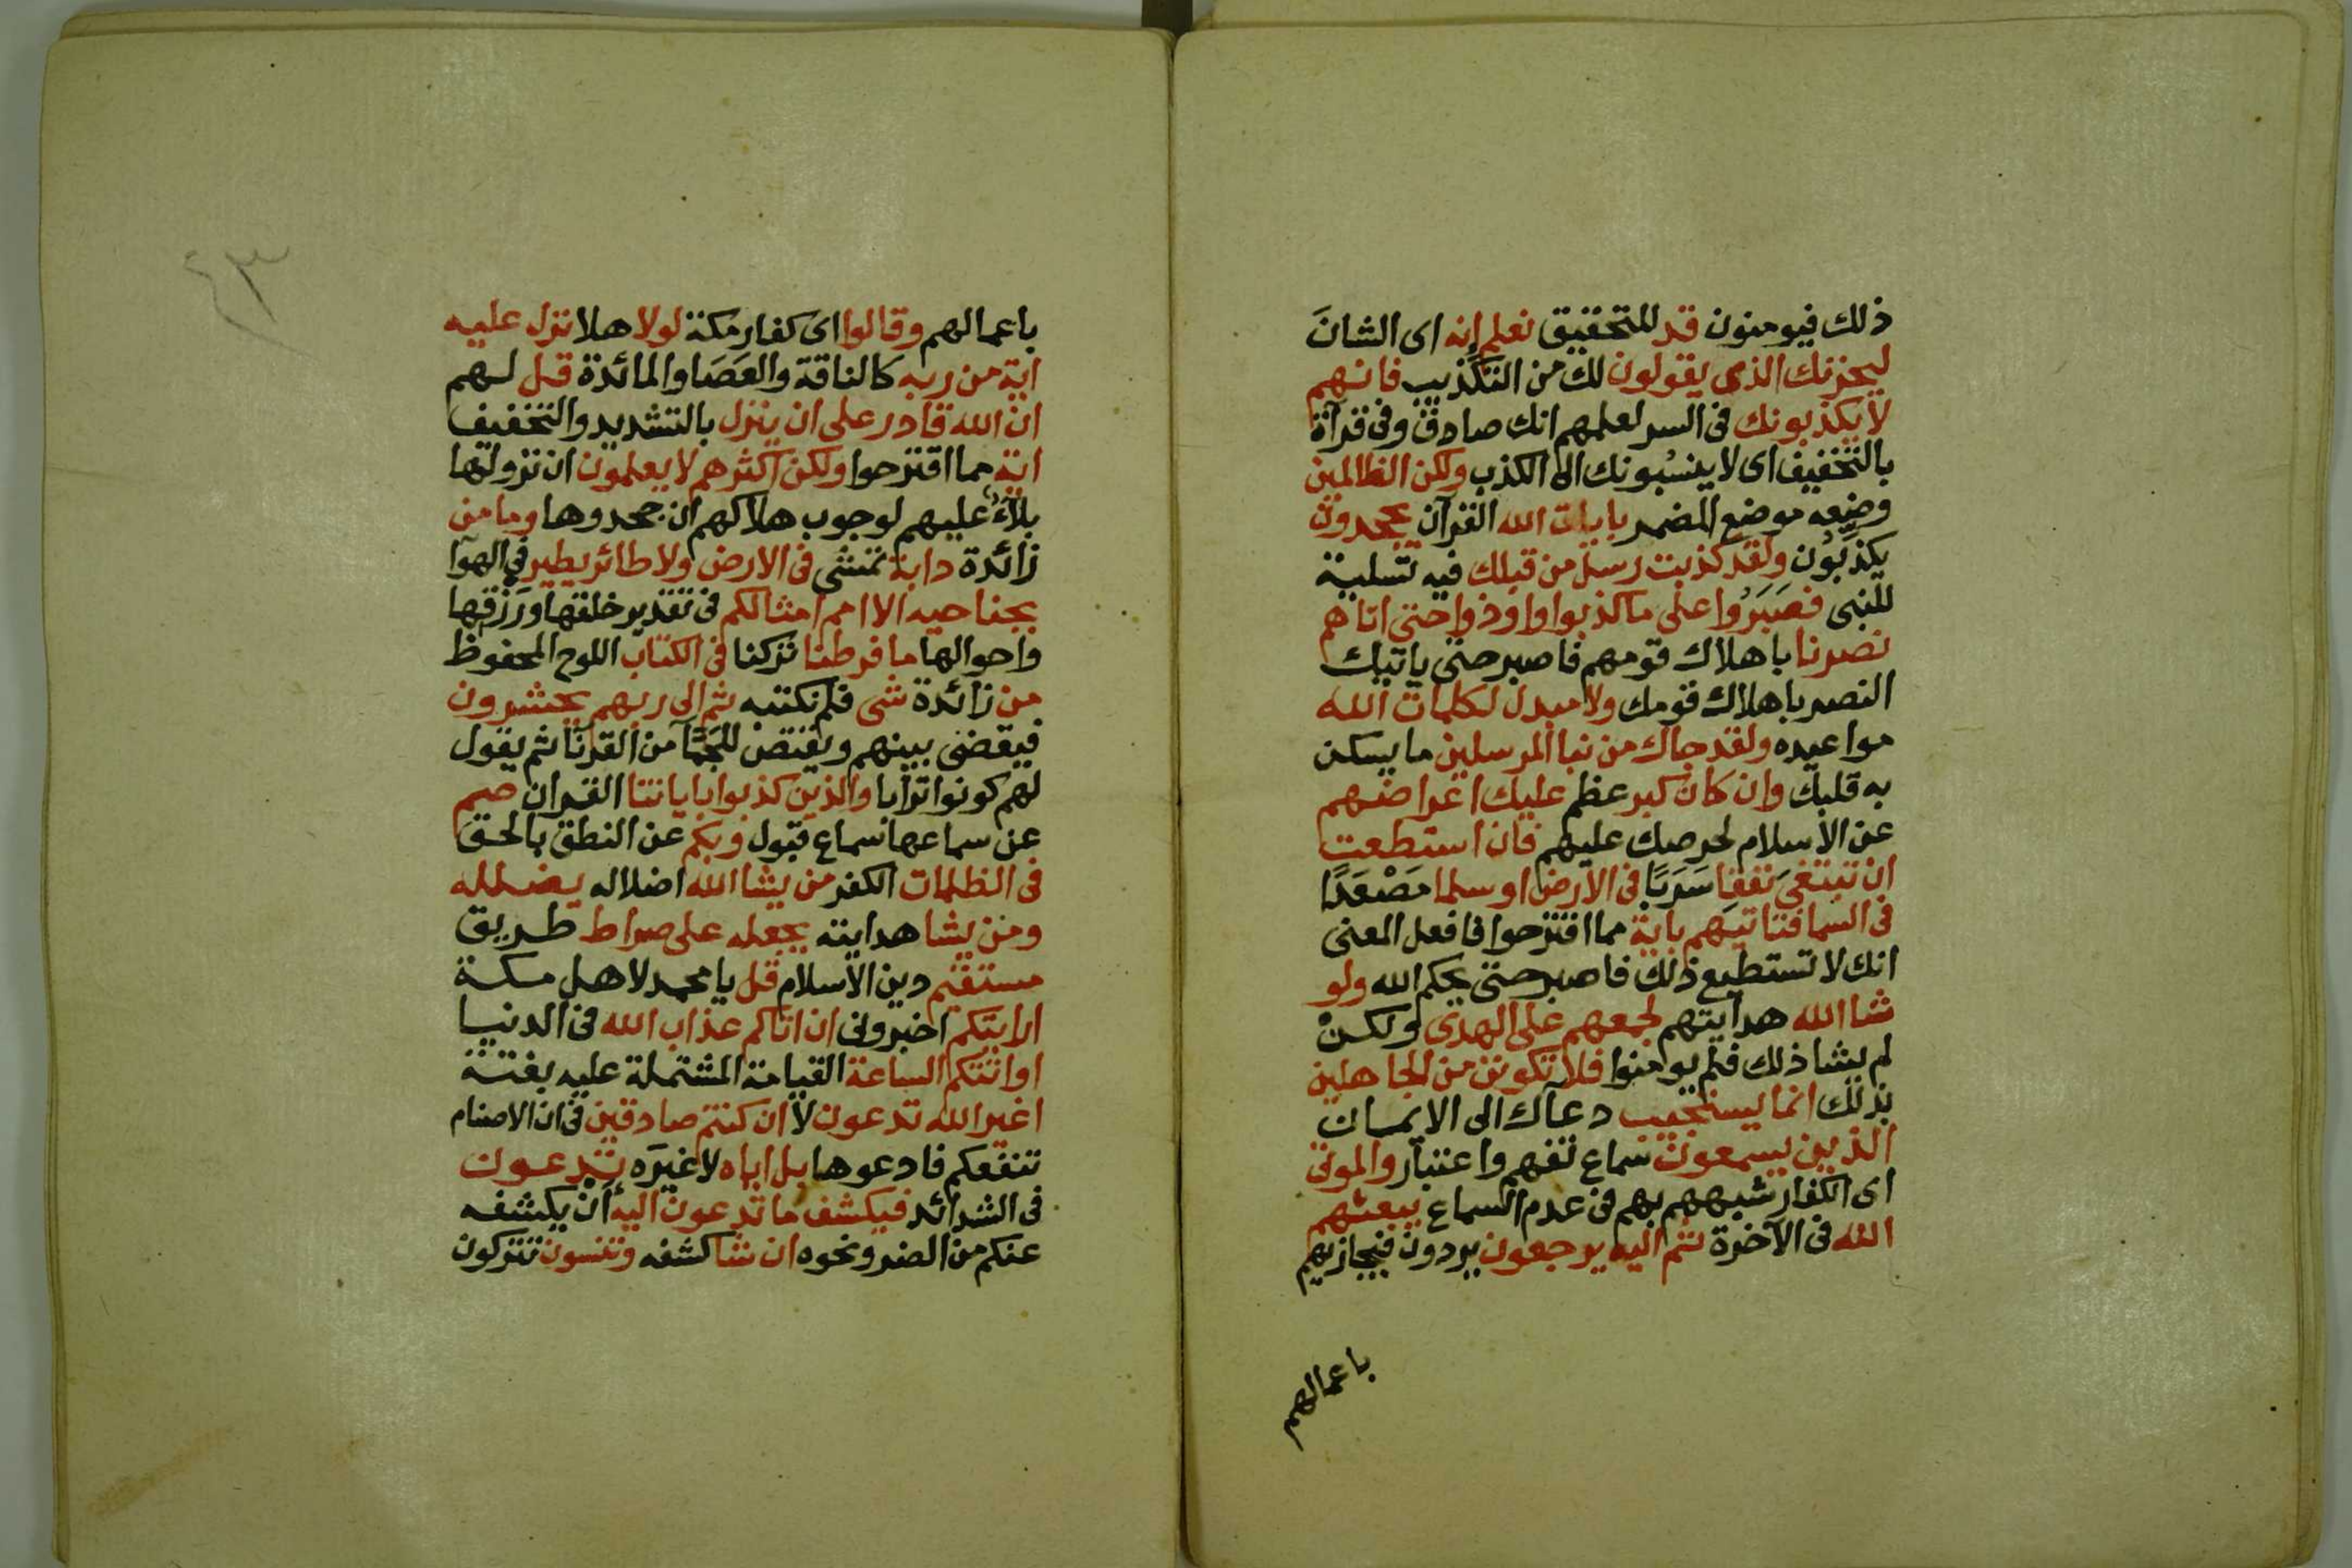 ذلك فيومنون قد للتحقيق نعلم إنه اى الشانَ
ليحزنك الذى يقولون لك من التكذيب فانهم
لا يكذبونك فى السر لعلمهم انك صادق وفى قرآة
بالتخفيف اى لا ينسبونك الى الكذب ولكن الظالمين
وضعه موضع المضمر بايات الله القرآن يجحدون
يكذبون ولقد كذبت رسل من قبلك فيه تسلية
للنبى فصبَرُوا على ما كذبوا واوذوا حتى اتاهم
نصرنا باهلاك قومهم فاصبر حتى ياتيك
النصر باهلاك قومك ولا مبدل لكلمات الله
مواعيده ولقد جاك من نبا المرسلين ما يسكن
به قلبك وان كان كبر عظم عليك اعراضهم
عن الاسلام لحرصك عليهم فان استطعت
ان تبتغىَ نفقا سَرَبًا فى الارض او سلما مَصْعَدًا
فى السما فتاتيَهم باية مما اقترحوا فافعل المعنى
انك لا تستطيع ذلك فاصبر حتى يحكم الله ولو
شا الله هدايتهم لجمعهم على الهدى ولكنْ
لم يشا ذلك فلم يومنوا فلا تكونن من الجاهلين
بذلك انما يستجيب دعآك الى الايمان
الذين يسمعون سماع تفهم واعتبار والموتى
اى الكفار شبههم بهم فى عدم السماع يبعثهم
الله فى الآخرة ثم اليه يرجعون يردون فيجازيهم
باعمالهم
٤٣
باعمالهم وقالوا اى كفار مكة لولا هلا نزل عليه
اية من ربه كالناقة والعَصَا والمائدة قل لهم
ان الله قادر على ان ينزل بالتشديد والتخفيف
اية مما اقترحوا ولكن اكثرهم لا يعلمون ان نزولها
بلآءٌ عليهم لوجوب هلاكهم ان جحدوها وما من
زائدة دابة تمشى فى الارض ولا طائر يطير فى الهوآ
بجناحيه الا امم امثالكم فى تقدير خلقها ورَزقها
واحوالها ما فرطنا تركنا فى الكتاب اللوح المحفوظ
من زائدة شى فلم نكتبه ثم الى ربهم يحشرون
فيقضى بينهم ويقتص للجَمّآ من القرنآ ثم يقول
لهم كونوا ترابا والذين كذبوا باياتنا القران صم
عن سماعها سماع قبول وبكم عن النطق بالحق
فى الظلمات الكفر من يشا الله اضلاله يضلله
ومن يشا هدايته يجعله على صراط طريق
مستقيم دين الاسلام قل يا محمد لاهل مكة
ارايتكم اخبرونى ان اتاكم عذاب الله فى الدنيا
او اتتكم الساعة القيامة المشتملة عليه بغتة
اغير الله تدعون لا ان كنتم صادقين فى ان الاصنام
تنفعكم فادعوها بل اياه لا غيرَه تدعون
فى الشدائد فيكشف ما تدعون اليه أنْ يكشفه
عنكم من الضر ونحوه ان شا كشفه وتنسون تتركون